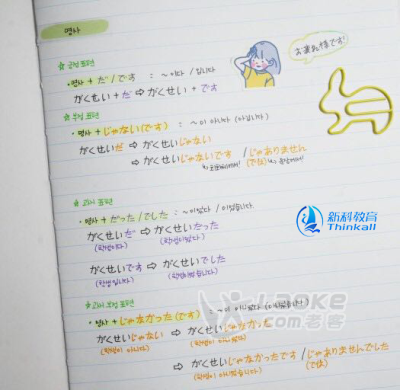 명사
☆ 긍정 표현
お疲れ様です!
• 명사 + だ / です : ~이다 / 입니다
がくせい + だ ⇨ がくせい + です
☆ 부정 표현
• 명사 + じゃない(です) : ~이 아니다 (아닙니다)
がくせいだ ⇨ がくせいじゃない
⇨ がくせいじゃないです / じゃありません
(では)
☆ 과거 표현
• 명사 + だった / でした : ~이었다 / 이었습니다.
がくせいだ ⇨ がくせいだった
(학생이다) (학생이었다)
がくせいです ⇨ がくせいでした
(학생입니다) (학생이었습니다)
新科教育
Thinkall
☆ 과거 부정 표현
• 명사 + じゃなかった (です) : ~이 아니었다 (아니었습니다)
がくせいじゃない ⇨ がくせいじゃなかった
(학생이 아니다) (학생이 아니었다)
⇨ がくせいじゃなかったです / じゃありませんでした
(학생이 아니었습니다) (では)
老客